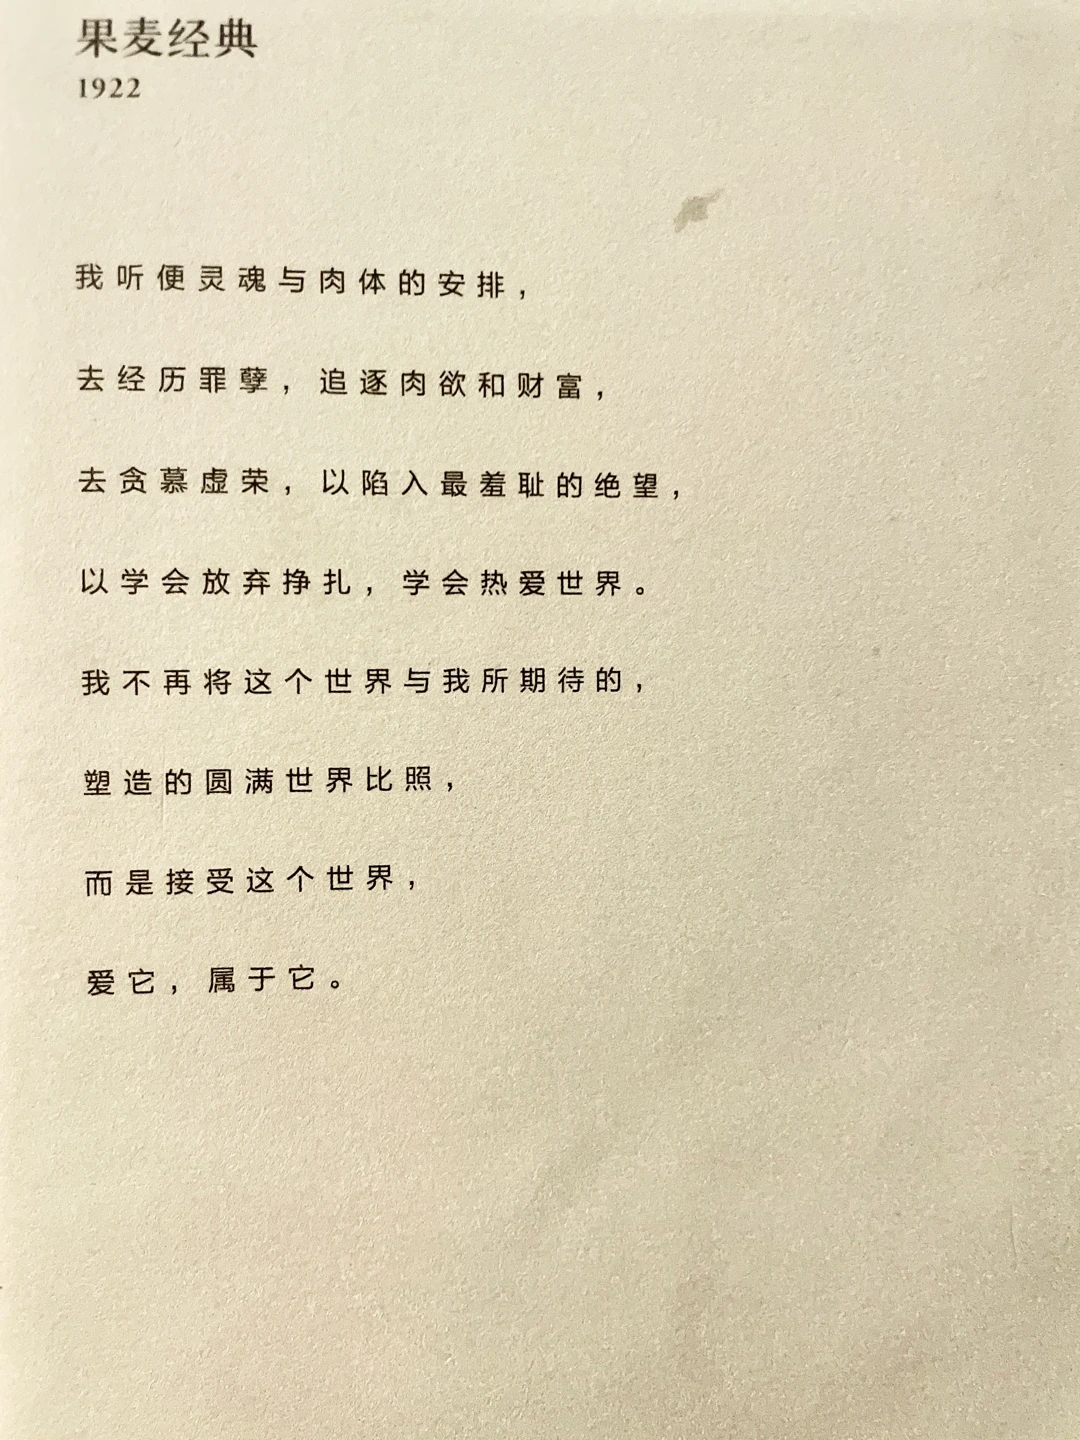 果麦经典
1922
我听便灵魂与肉体的安排，
去经历罪孽，追逐肉欲和财富，
去贪慕虚荣，以陷入最羞耻的绝望，
以学会放弃挣扎，学会热爱世界。
我不再将这个世界与我所期待的，
塑造的圆满世界比照，
而是接受这个世界，
爱它，属于它。